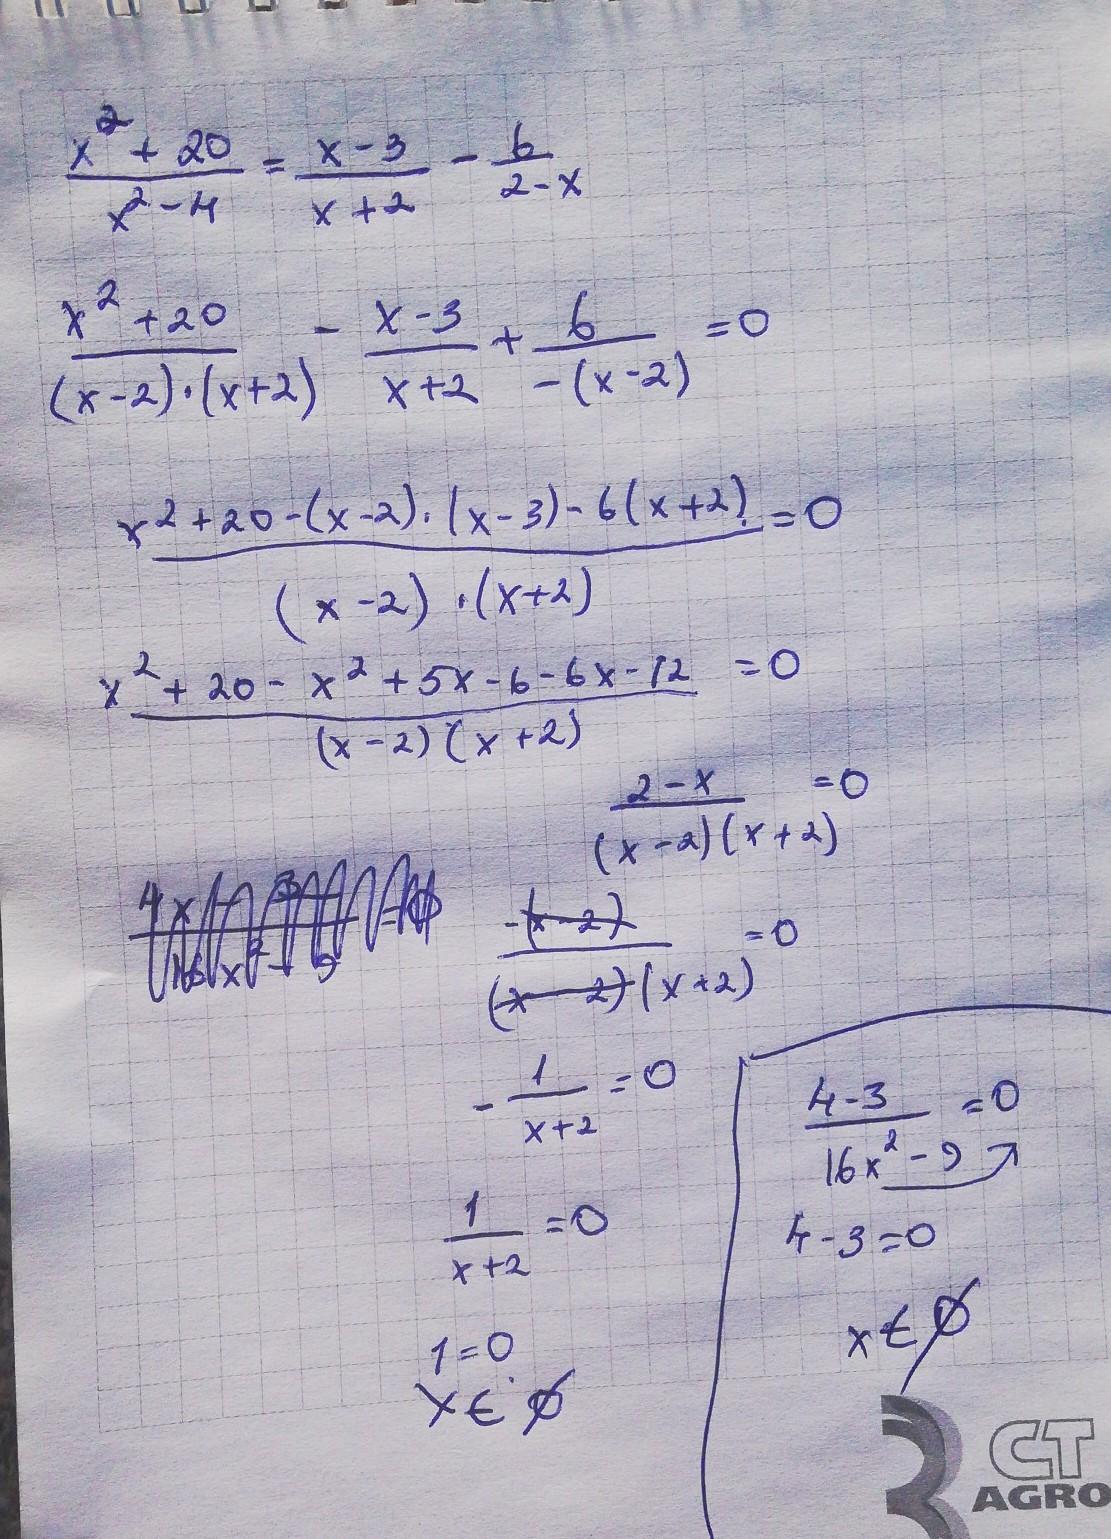 (x²+20)/(x²-4) = (x-3)/(x+2) - 6/(2-x)
(x²+20)/((x-2)·(x+2)) - (x-3)/(x+2) + 6/(-(x-2)) =0
(x²+20-(x-2)·(x-3)-6(x+2))/((x-2)·(x+2)) =0
(x²+20-x²+5x-6-6x-12)/((x-2)(x+2)) =0
(2-x)/((x-2)(x+2)) =0
(-(x-2))/((x-2)(x+2)) =0
-1/(x+2) =0
1/(x+2) =0
1=0
x∈∅
(4-3)/(16x²-9) =0
4-3=0
x∈∅
CT
AGRO